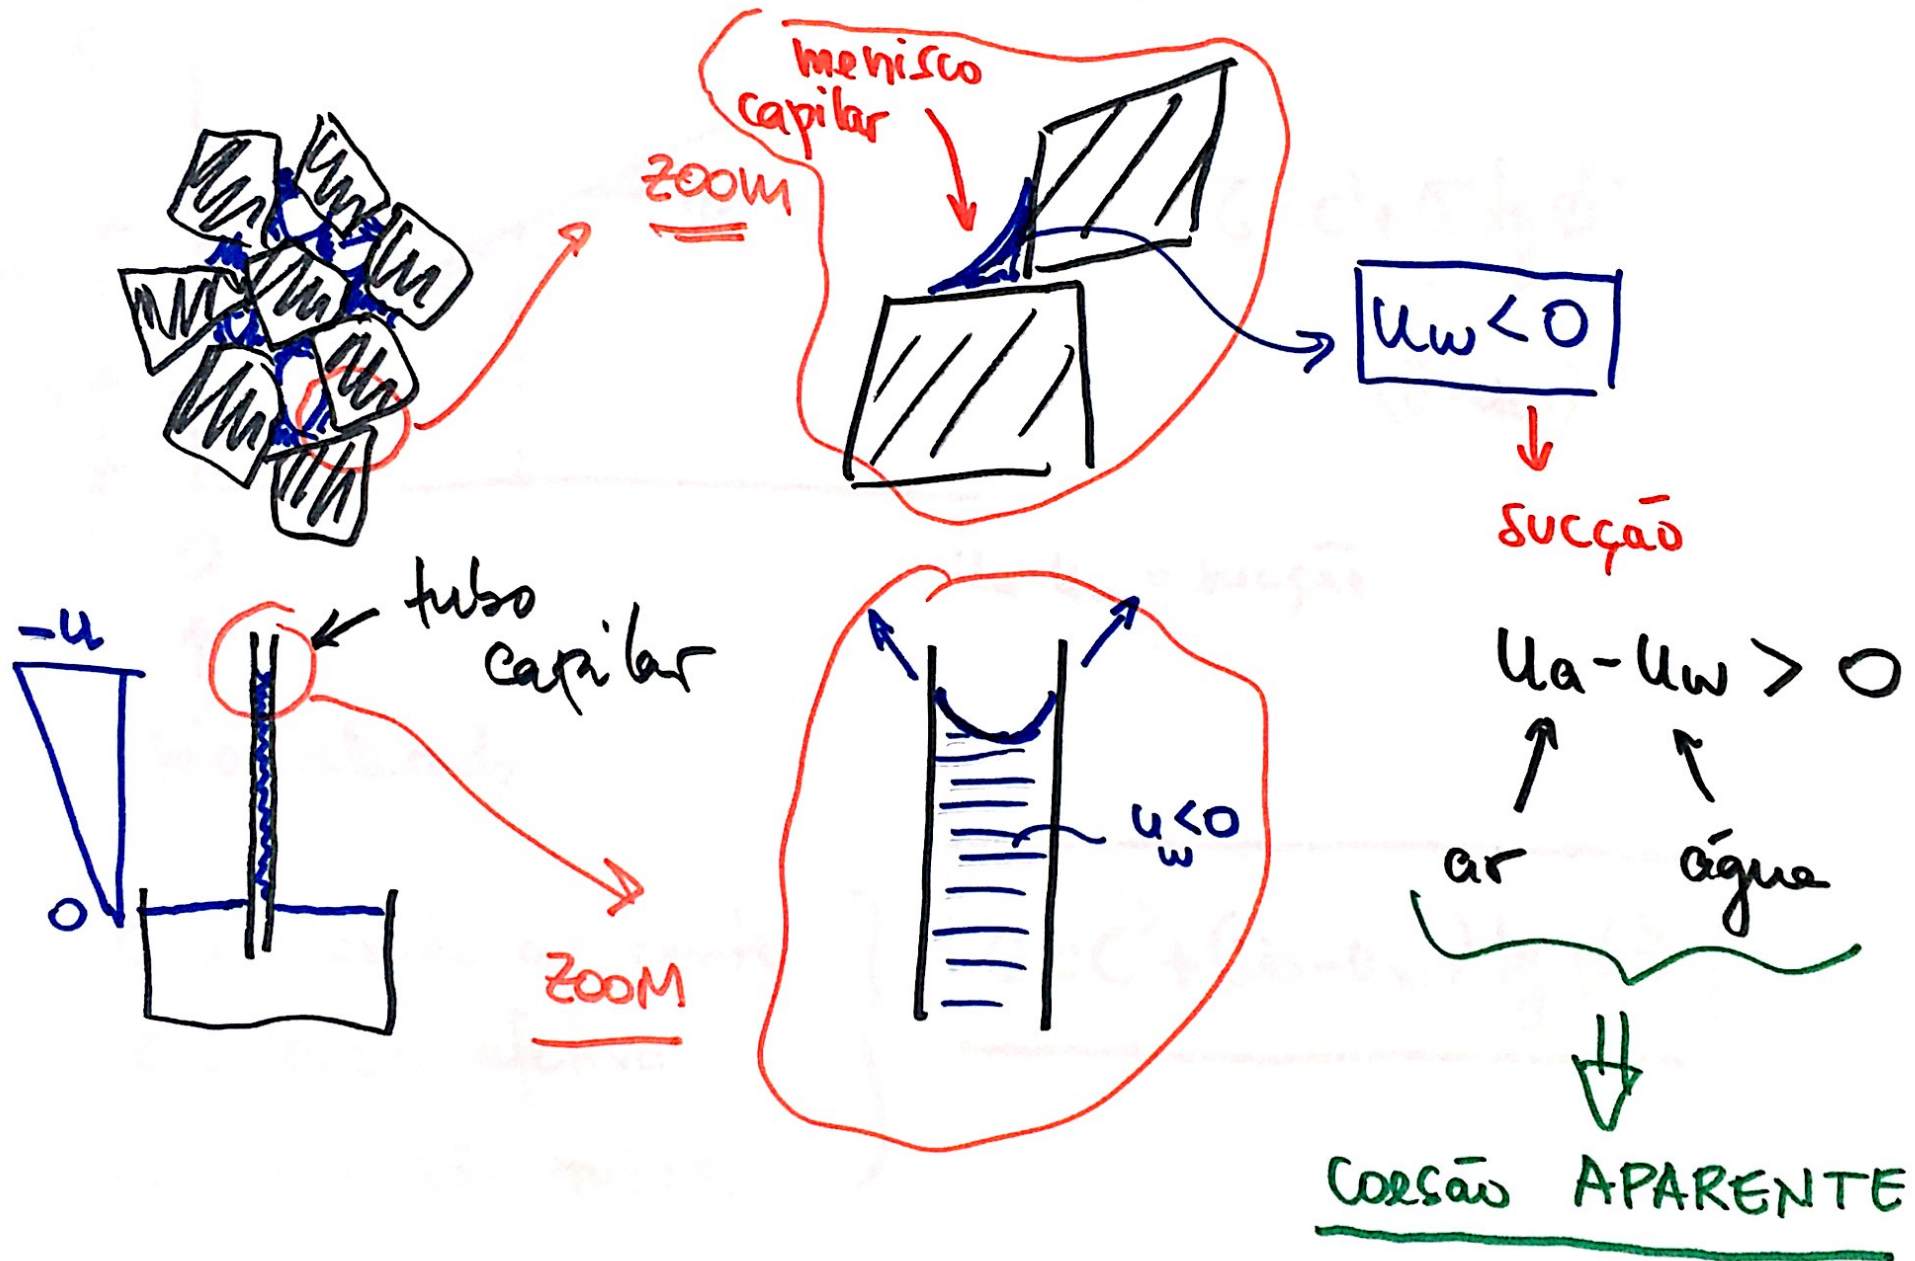 menisco
capilar
ZOOM
uw < 0
sucção
tubo
capilar
-u
0
ZOOM
uw<0
ua - uw > 0
ar
água
Coesão APARENTE